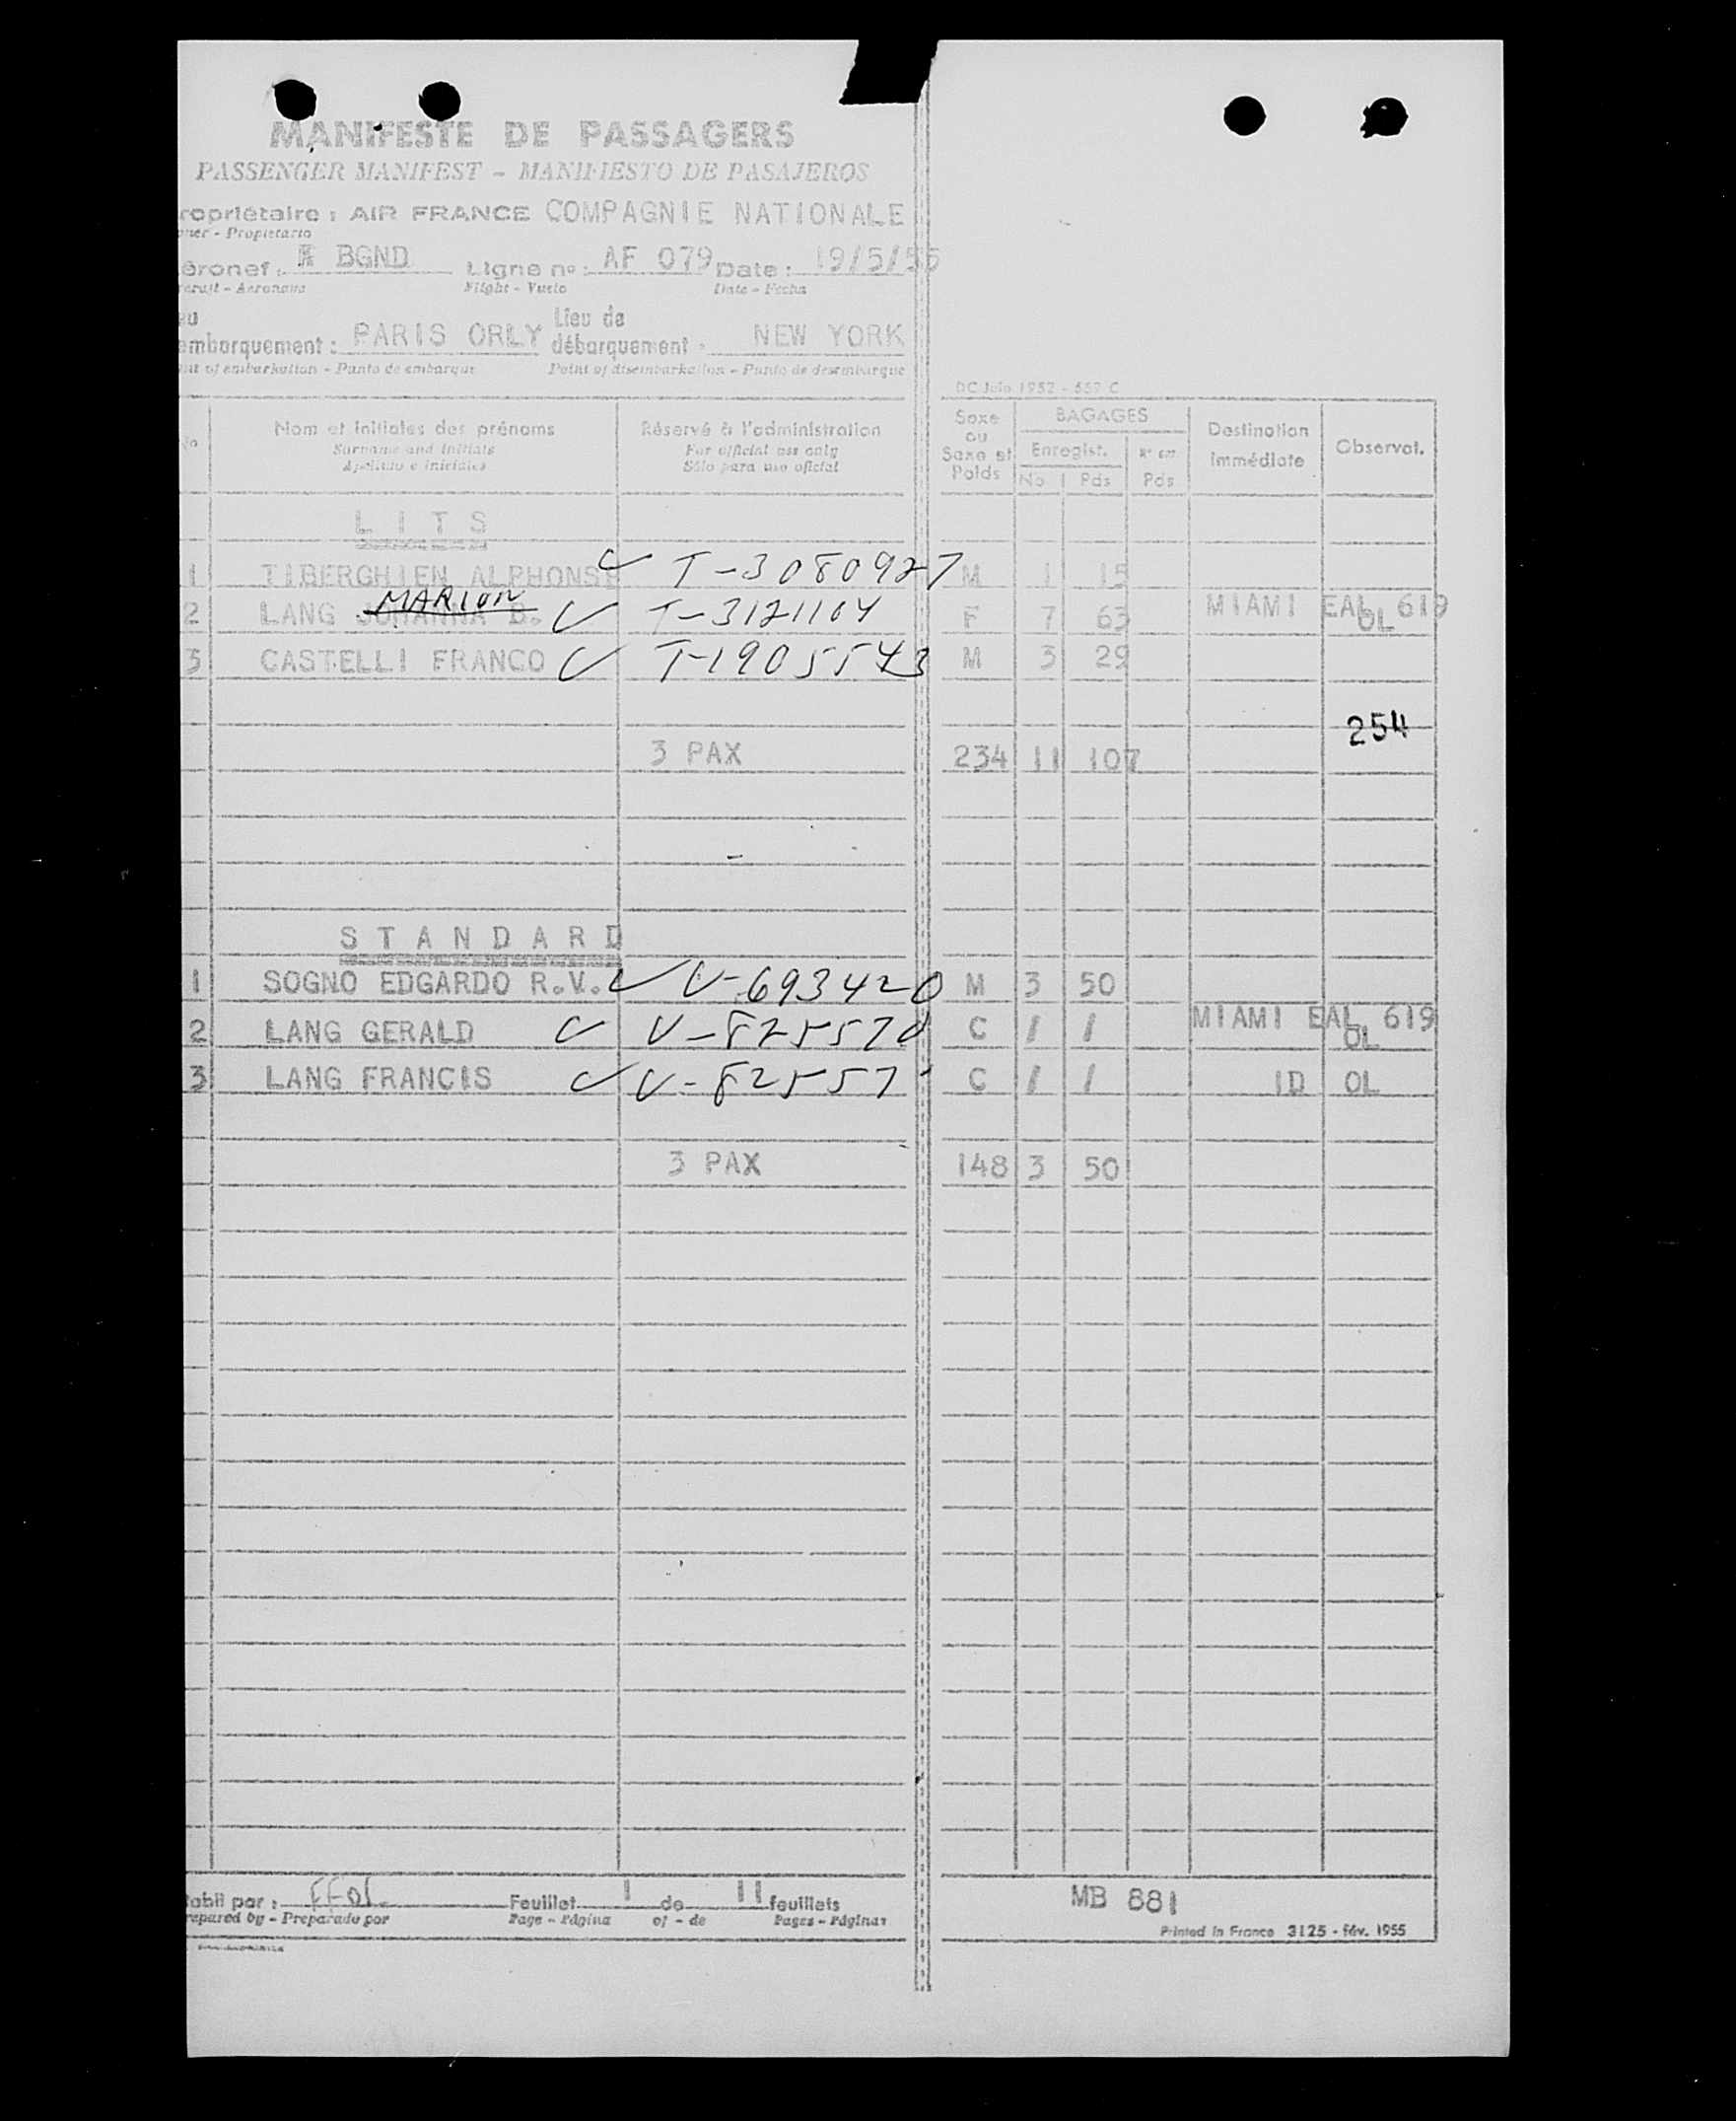 MANIFESTE DE PASSAGERS
PASSENGER MANIFEST - MANIFIESTO DE PASAJEROS
ropriétaire : AIR FRANCE COMPAGNIE NATIONALE
ner - Propietario
éronef : BGND Ligne nº : AF 079 Date : 19/5/55
craft - Aeronave Flight - Vuelo Date - Fecha
Lieu de
embarquement : PARIS ORLY débarquement : NEW YORK
nt of embarkation - Punto de embarque Point of disembarkation - Punto de desembarque
DC Juin 1952 - 552 C
No Nom et initiales des prénoms Réservé à l'administration Sexe ou Sexe et Poids BAGAGES Destination immédiate Observat.
Surname and initials For official use only Enregist.
Apellido e iniciales Sólo para uso oficial No Pds Pds
L I T S
1 TIBERGHIEN ALPHONSE T-3080927 M 1 15
MARION
2 LANG JOHANNA B. T-3121104 F 7 63 MIAMI EAL 619
OL
3 CASTELLI FRANCO T-1905543 M 3 29
254
3 PAX 234 11 107
S T A N D A R D
1 SOGNO EDGARDO R.V. V-693420 M 3 50
2 LANG GERALD V-825570 C / / MIAMI EAL 619
OL
3 LANG FRANCIS V-82557 C / / ID OL
3 PAX 148 3 50
tabli par : Feuillet 1 de 11 feuillets MB 881
repared by - Preparado por Page - Página of - de Pages - Páginas
Printed in France 3125 - fév. 1955